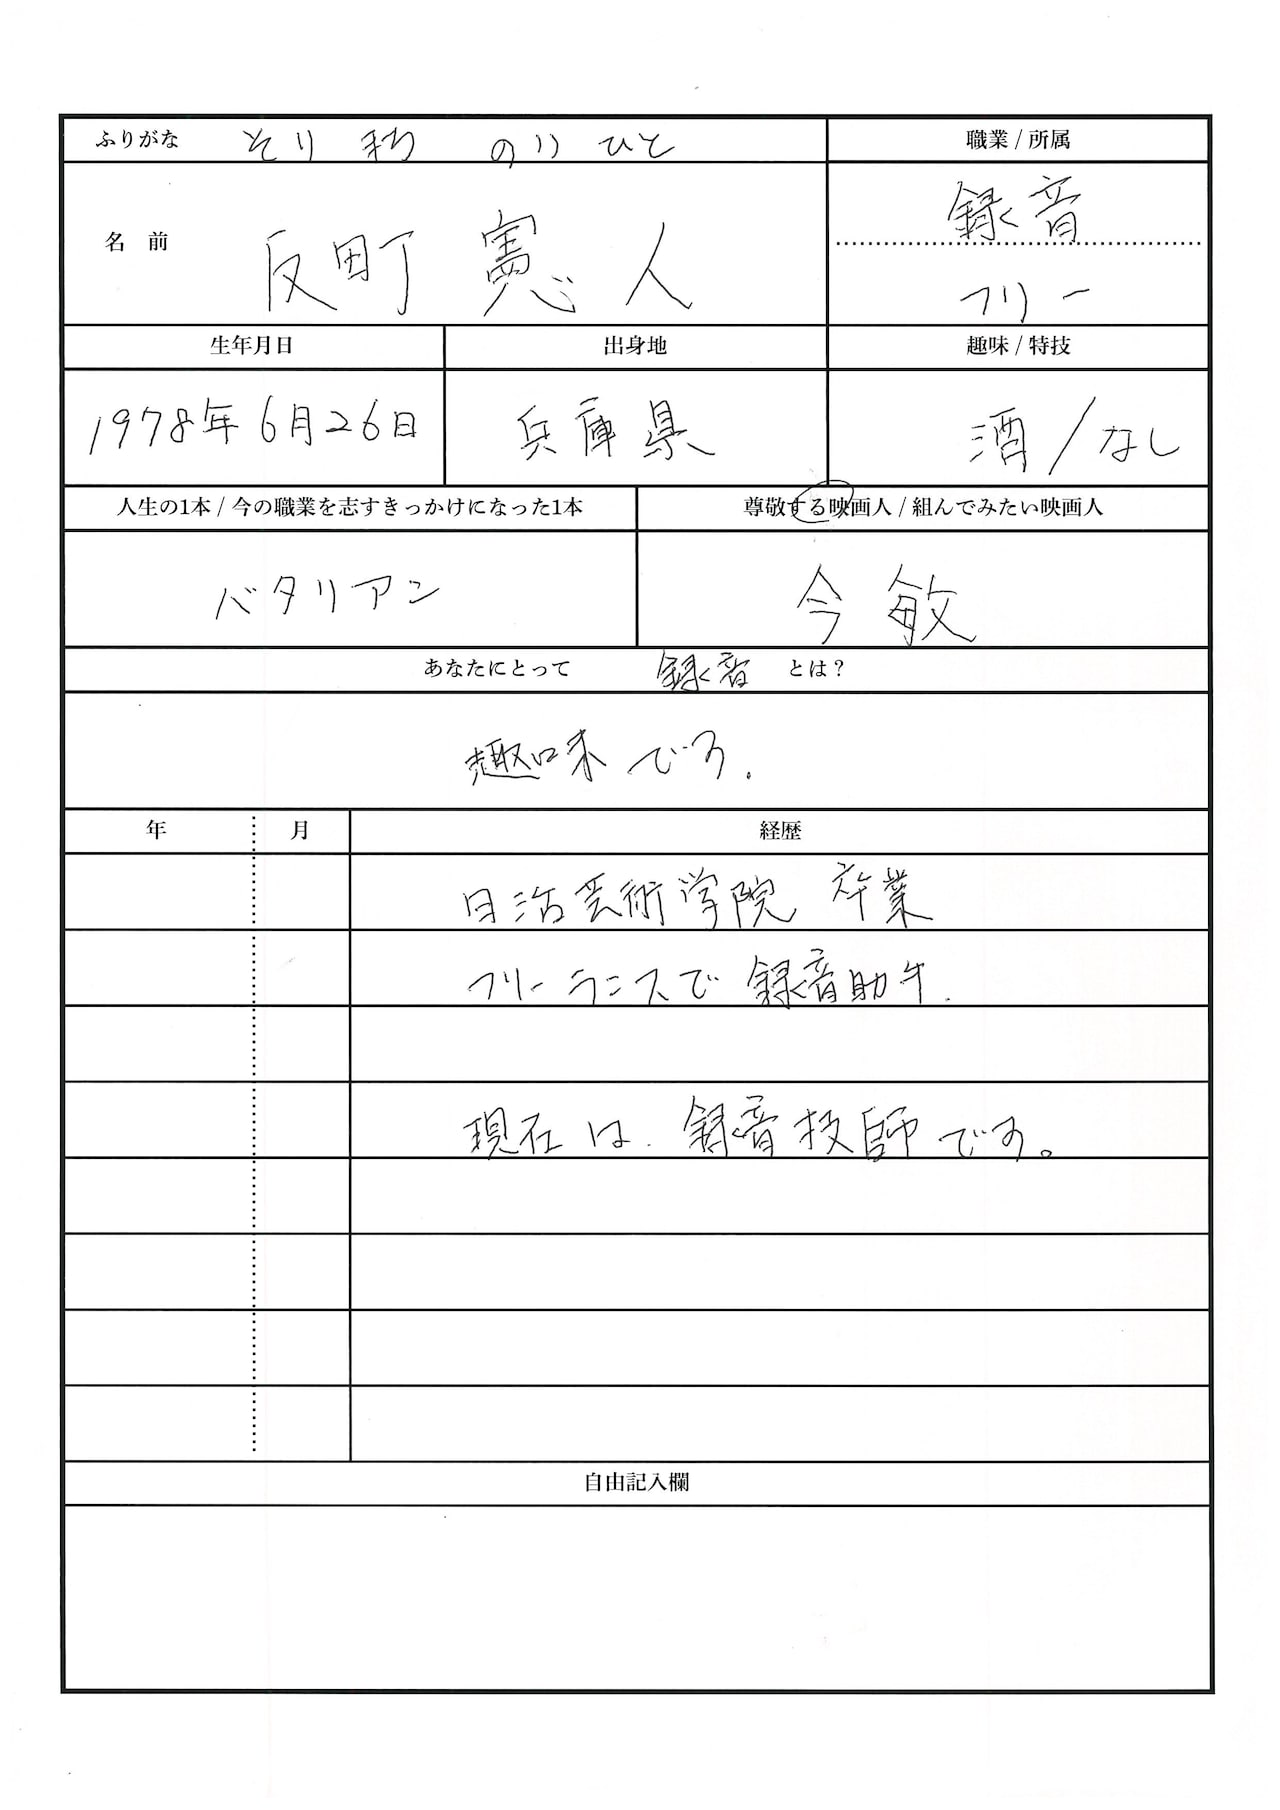 ふりがな そり まち のり ひと
職業 / 所属
名 前 反町 憲人
録音
フリー
生年月日 出身地 趣味 / 特技
1978年6月26日 兵庫県 酒/なし
人生の1本 / 今の職業を志すきっかけになった1本 尊敬する映画人 / 組んでみたい映画人
バタリアン 今 敏
あなたにとって 録音 とは?
趣味です.
年 月 経歴
日活芸術学院 卒業
フリーランスで 録音助手.
現在は. 録音技師です。
自由記入欄